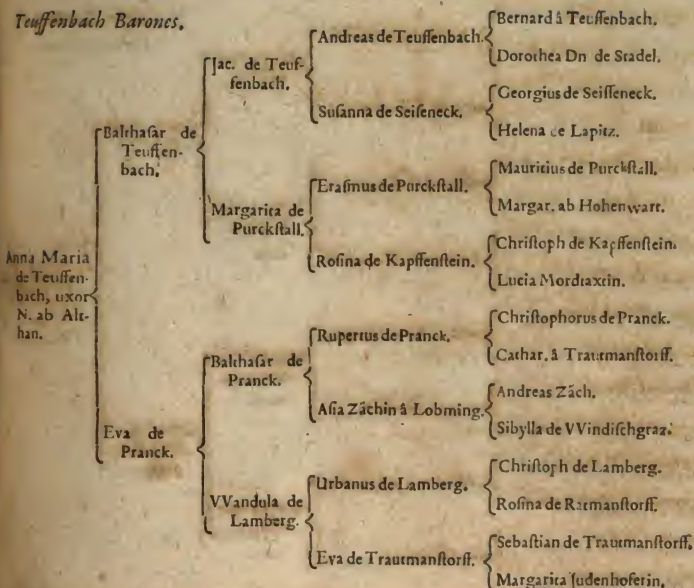 Teuffenbach Barones.
Anna Maria
de Teuffen-
bach, uxor
N. ab Alt-
han.
Balthaſar de
Teuffen-
bach.
Eva de
Pranck.
Jac. de Teuf-
fenbach.
Margarita de
Purckſtall.
Balthaſar de
Pranck.
VVandula de
Lamberg.
Andreas de Teuffenbach.
Suſanna de Seiſeneck.
Eraſmus de Purckſtall.
Roſina de Kapffenſtein.
Rupertus de Pranck.
Aſia Zächin â Lobming.
Urbanus de Lamberg.
Eva de Trautmanſtorff.
Bernard â Teuffenbach.
Dorothea Dn de Stadel.
Georgius de Seiſſeneck.
Helena de Lapitz.
Mauritius de Purckſtall.
Margar. ab Hohenwart.
Chriſtoph de Kapffenſtein.
Lucia Mordtaxtin.
Chriſtophorus de Pranck.
Cathar. â Trautmanſtorff.
Andreas Zäch.
Sibylla de VVindiſchgraz.
Chriſtoph de Lamberg.
Roſina de Ratmanſtorff.
Sebaſtian de Trautmanſtorff.
Margarita Judenhoferin.